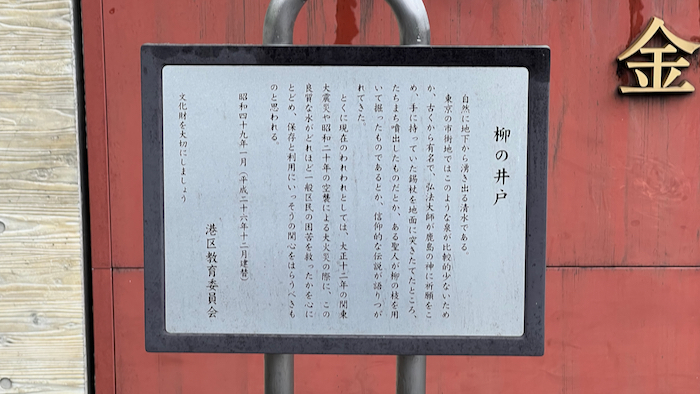 柳の井戸
自然に地下から湧き出る清水である。
東京の市街地ではこのような泉が比較的少ないため
か、古くから有名で、弘法大師が鹿島の神に祈願をこ
め、手に持っていた錫杖を地面に突きたてたところ、
たちまち噴出したものだとか、ある聖人が柳の枝を用
いて掘ったものであるとか、信仰的な伝説が語りつが
れてきた。
とくに現在のわれわれとしては、大正十二年の関東
大震災や昭和二十年の空襲による大火災の際に、この
良質な水がどれほど一般区民の困苦を救ったかを心に
とどめ、保存と利用にいっそうの関心をはらうべきも
のと思われる。
昭和四十九年一月(平成二十六年十二月建替)
港区教育委員会
文化財を大切にしましょう
金